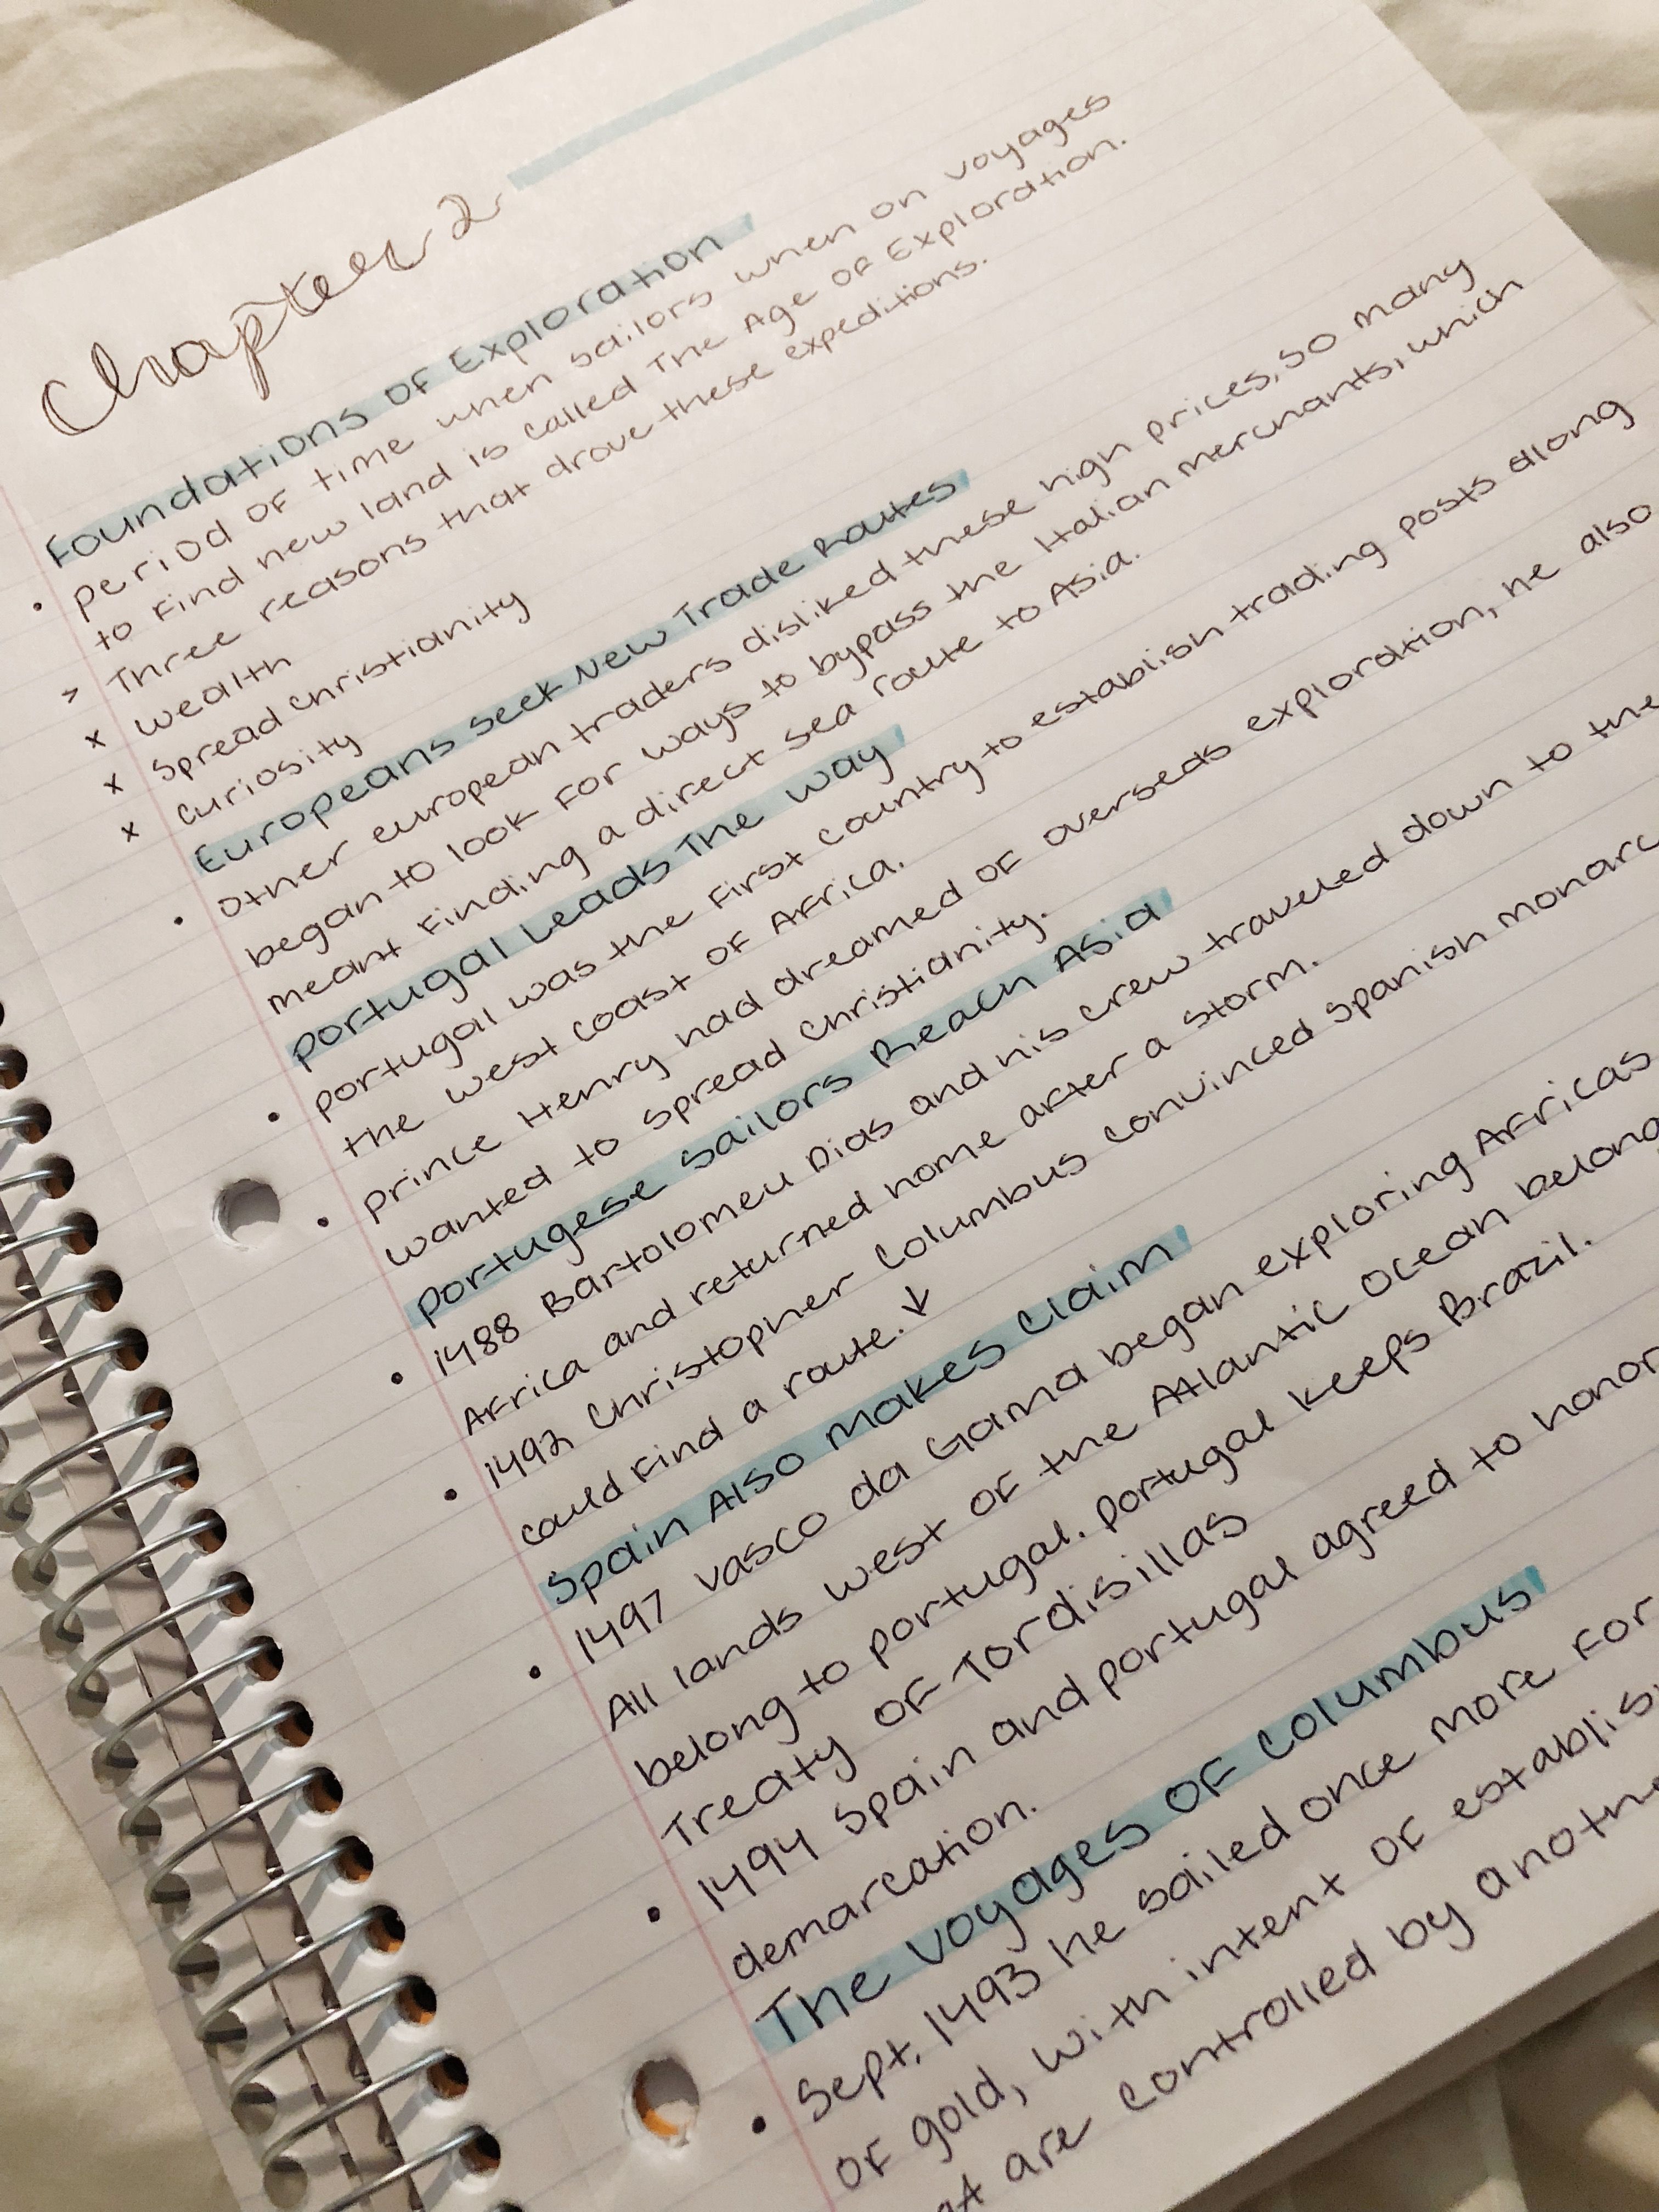 Chapter 2
Foundations of Exploration
• period of time when sailors when on voyages
to find new land is called The Age of Exploration.
> Three reasons that drove these expeditions.
x wealth
x spread christianity
x curiosity
Europeans seek New Trade Routes
• other european traders disliked these high prices, so many
began to look for ways to bypass the Italian merchants, which
meant finding a direct sea route to Asia.
portugal Leads The way
• portugal was the first country to establish trading posts along
the west coast of Africa.
• prince Henry had dreamed of overseas exploration, he also
wanted to spread christianity.
portugese sailors Reach Asia
• 1488 Bartolomeu Dias and his crew traveled down to the
Africa and returned home after a storm.
• 1492 Christopher columbus convinced spanish monarc
could find a route. ↓
Spain Also Makes Claim
• 1497 vasco da Gama began exploring Africas
All lands west of the Atlantic Ocean belong
belong to portugal. portugal keeps Brazil.
Treaty of Tordisillas
• 1494 spain and portugal agreed to honor
demarcation.
The voyages of columbus
• sept. 1493 he sailed once more for
of gold, with intent of establis
are controlled by anothe